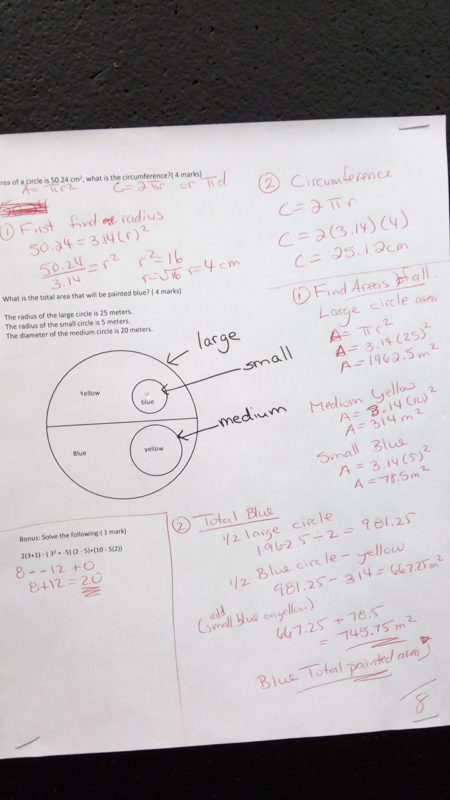 rea of a circle is 50.24 cm², what is the circumference?( 4 marks)
A= πr² C=2πr or πd
① First find radius
50.24=3.14(r)²
50.24/3.14 = r² r²=16
r=√16 r=4cm
② Circumference
C=2πr
C=2(3.14)(4)
C=25.12cm
What is the total area that will be painted blue? ( 4 marks)
The radius of the large circle is 25 meters.
The radius of the small circle is 5 meters.
The diameter of the medium circle is 20 meters.
large
small
medium
Yellow
blue
Blue
yellow
① Find Areas of all.
Large circle area
A= πr²
A=3.14(25)²
A=1962.5m²
Medium Yellow
A=3.14(10)²
A=314m²
Small Blue
A=3.14(5)²
A=78.5m²
Bonus: Solve the following:( 1 mark)
2(3+1) - ( 3² + -5) (2 · 5)+(10 - 5(2))
8 - -12 + 0
8+12=20
② Total Blue
1/2 large circle
1962.5÷2=981.25
1/2 Blue circle - yellow
981.25-314=667.25m²
add
(small blue on yellow)
667.25+78.5
=745.75m²
Blue Total painted area
8